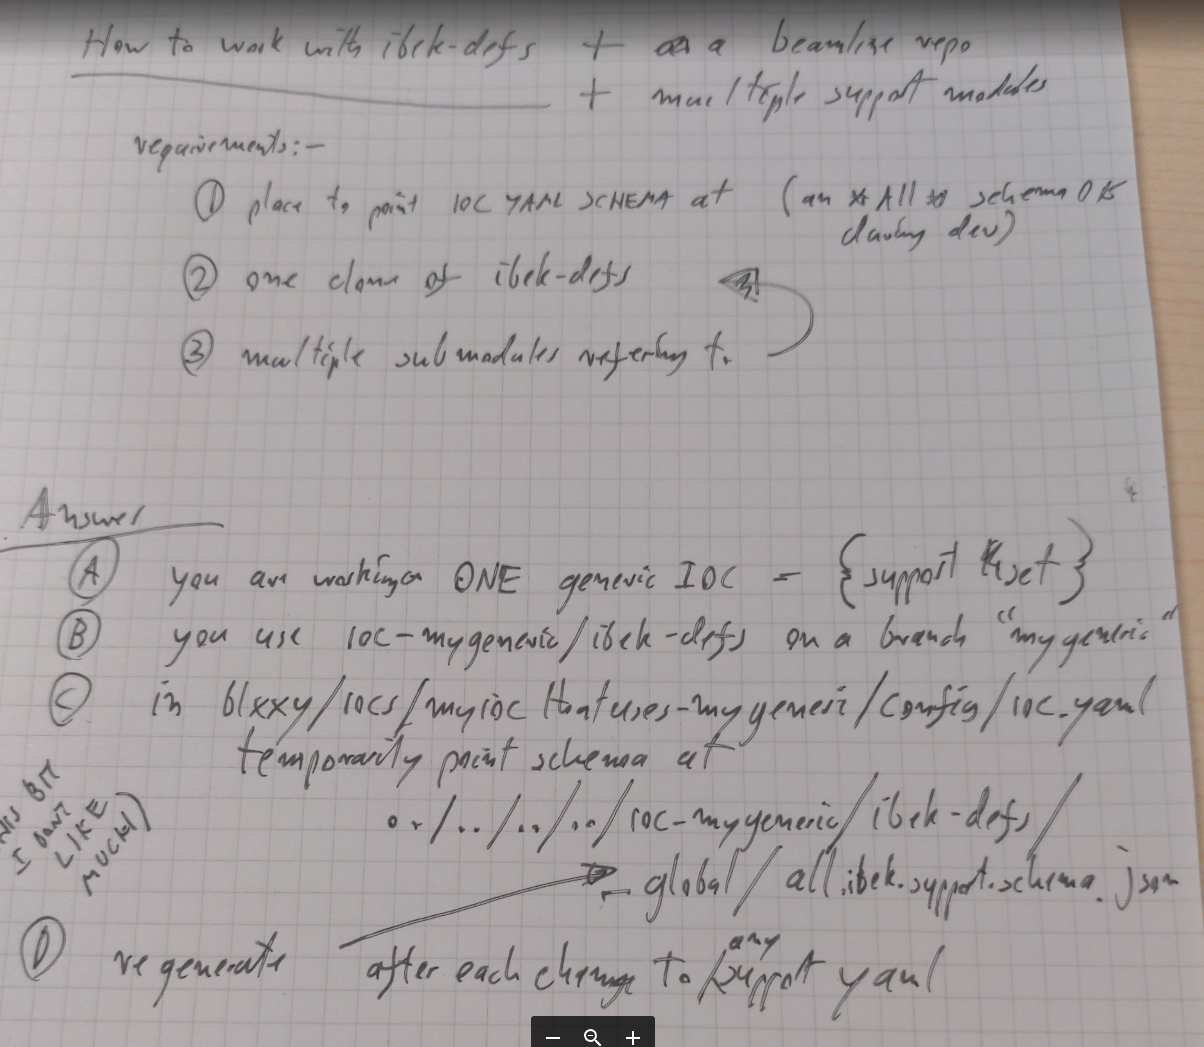 How to work with ibek-defs + a beamline repo
+ multiple support modules
requirements:-
① place to point IOC YAML SCHEMA at (an * All * schema OK
during dev)
② one clone of ibek-defs
③ multiple submodules refering to
Answer
Ⓐ you are working on ONE generic IOC = {support set}
Ⓑ you use ioc-mygeneric/ibek-defs on a branch "mygeneric"
Ⓒ in blxxy/iocs/myioc thatuses-mygeneri/config/ioc.yaml
temporarily point schema at
../../../../ioc-mygeneric/ibek-defs/
_global/all.ibek.support.schema.json
THIS BIT
I DONT
LIKE
MUCH)
Ⓓ regenerate after each change to any support yaml